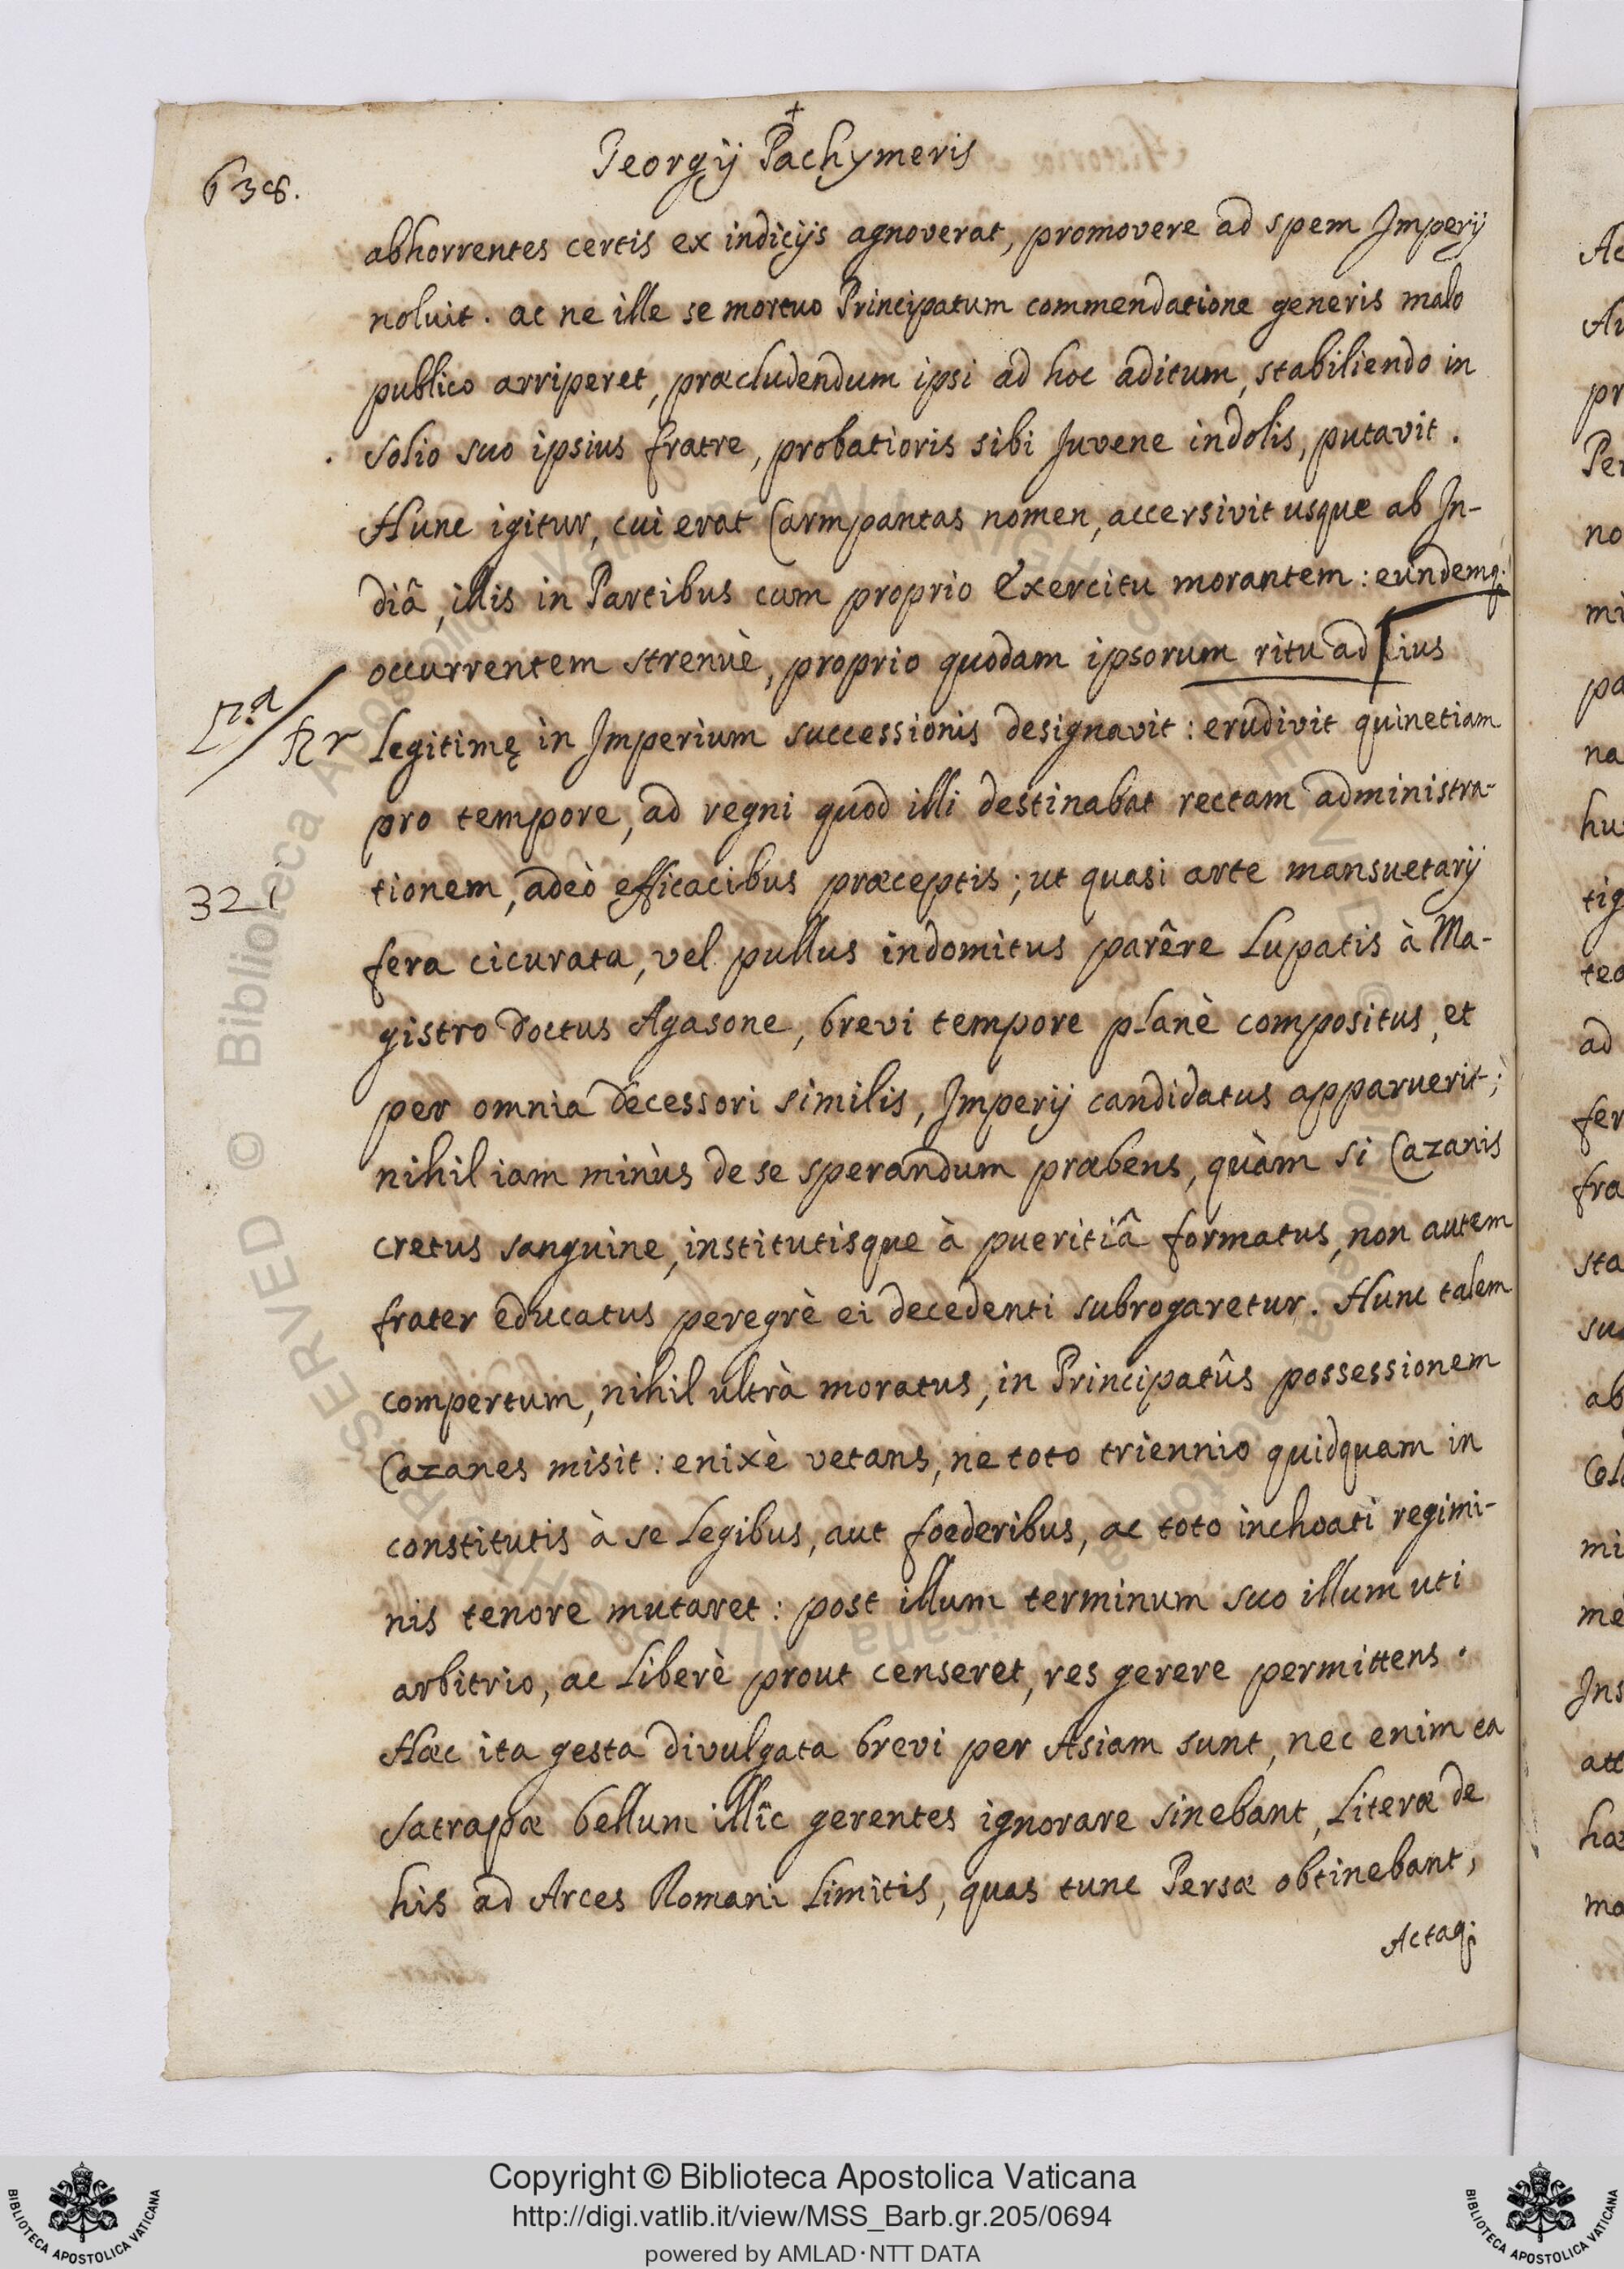 Georgij Pachymeris
638.
abhorrentes certis ex indicijs agnoverat, promovere ad spem Imperij
noluit. ac ne ille se mortuo Principatum commendatione generis malo
publico arriperet, præcludendum ipsi ad hoc aditum, stabiliendo in
solio suo ipsius fratre, probatioris sibi Juvene indolis, putavit.
Hunc igitur, cui erat Carmpantas nomen, accersivit usque ab In-
diâ, illis in Partibus cum proprio Exercitu morantem: eundemq;
occurrentem strenuè, proprio quodam ipsorum ritu ad ius
legitimę in Imperium successionis designavit: erudivit quinetiam
pro tempore, ad regni quod illi destinabat rectam administra-
321
tionem, adeò efficacibus præceptis; ut quasi arte mansuetarij
fera cicurata, vel pullus indomitus parêre Lupatis à Ma-
gistro doctus Agasone, brevi tempore planè compositus, et
per omnia decessori similis, Imperij candidatus apparuerit;
nihil iam minùs de se sperandum præbens, quàm si Cazanis
cretus sanguine, institutisque à pueritiâ formatus, non autem
frater educatus peregrè ei decedenti subrogaretur. Hunc talem
compertum, nihil ultrà moratus, in Principatûs possessionem
Cazanes misit: enixè vetans, ne toto triennio quidquam in
constitutis à se Legibus, aut foederibus, ac toto inchoati regimi-
nis tenore mutaret: post illum terminum suo illum uti
arbitrio, ac Liberè prout censeret, res gerere permittens.
Hæc ita gesta divulgata brevi per Asiam sunt, nec enim ea
Satrapæ bellum illîc gerentes ignorare sinebant, Literæ de
his ad Arces Romani Limitis, quas tunc Persæ obtinebant,
Actaq;
Copyright © Biblioteca Apostolica Vaticana
http://digi.vatlib.it/view/MSS_Barb.gr.205/0694
powered by AMLAD·NTT DATA
BIBLIOTECA APOSTOLICA VATICANA
BIBLIOTECA APOSTOLICA VATICANA